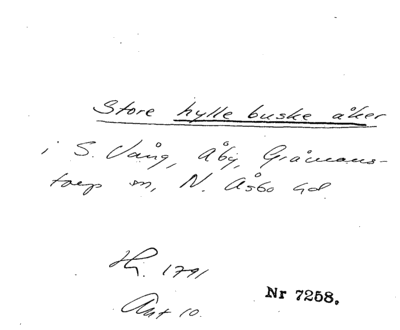 Store hylle buske åker
i S. Vång, Åby, Gråmans-
torp sn, N. Åsbo hd.
Hi. 1791
Akt 10.
Nr 7258.